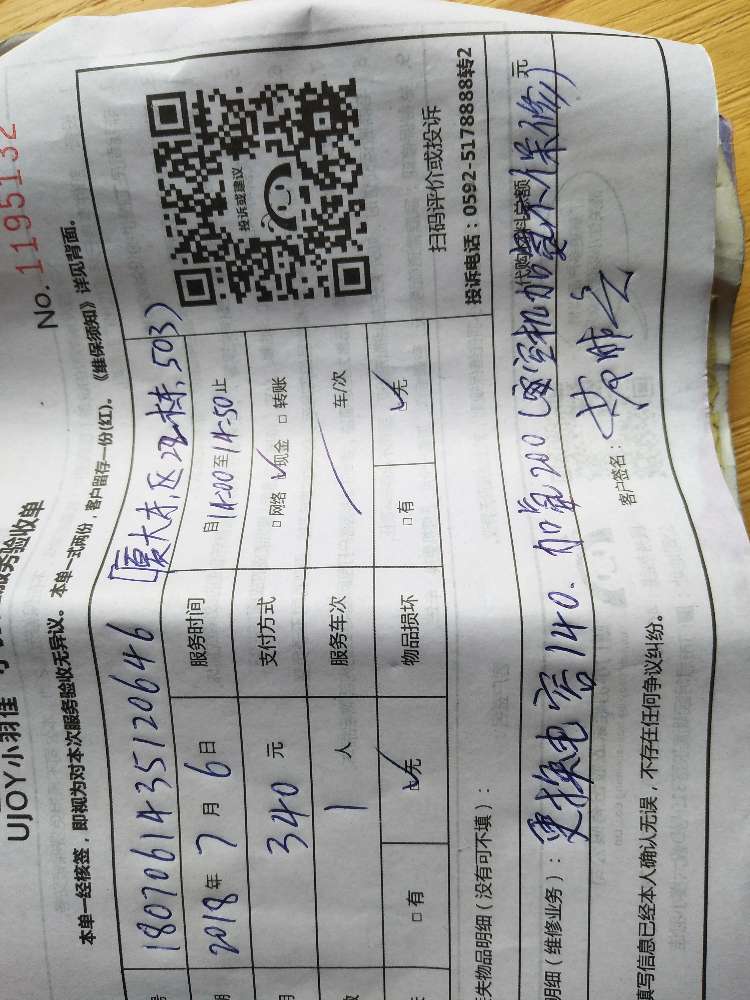 No. 1195132
UJOY小羽佳
服务验收单
本单一经核签，即视为对本次服务验收无异议。本单一式两份，客户留存一份(红)。《维保须知》详见背面。
号 1807061435120646 [厦大东区22栋,503)
2018年7月6日 服务时间 自14:00至14:50止
340元 支付方式 □网络 ☑现金 □转账
1人 服务车次 / 车/次
□有 ☑无 物品损坏 □有 ☑无
投诉或建议
扫码评价或投诉
投诉电话：0592-5178888转2
失物品明细（没有可不填）：
明细（维修业务）：更换电容140、加氟200(定空机加氟不保修)
代购材料总额 元
客户签名：
填写信息已经本人确认无误，不存在任何争议纠纷。